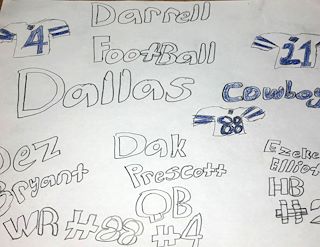 Darrell
4 FootBall 21
Dallas Cowboy
88
Dez Dak Ezeke
Bryant Prescott Elliot
WR #88 QB HB
#4 #2